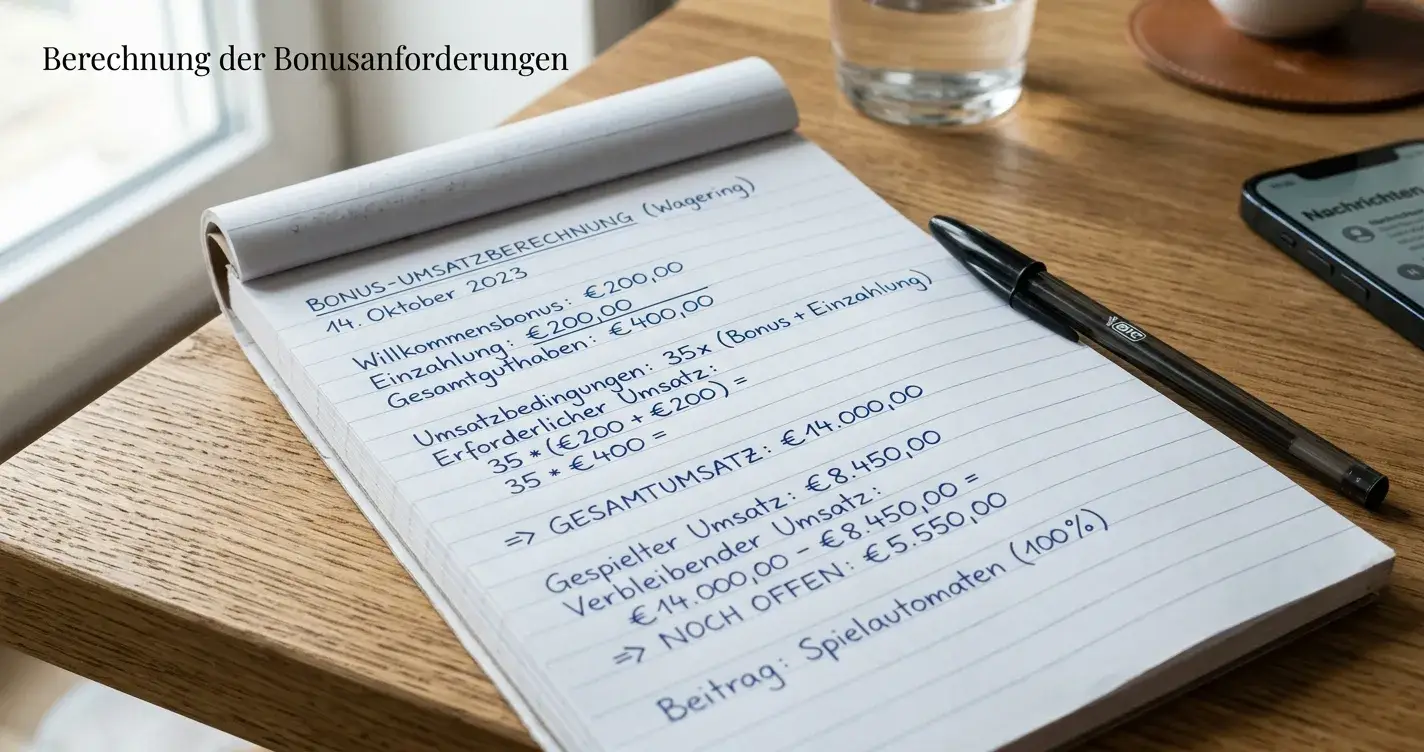 Berechnung der Bonusanforderungen
BONUS-UMSATZBERECHNUNG (Wagering)
14. Oktober 2023
Willkommensbonus: €200,00
Einzahlung: €200,00
Gesamtguthaben: €400,00
Umsatzbedingungen: 35x (Bonus + Einzahlung)
Erforderlicher Umsatz:
35 * (€200 + €200) =
35 * €400 =
=> GESAMTUMSATZ: €14.000,00
Gespielter Umsatz: €8.450,00
Verbleibender Umsatz:
€14.000,00 - €8.450,00 =
=> NOCH OFFEN: €5.550,00
Beitrag: Spielautomaten (100%)
BIC
Nachrichten